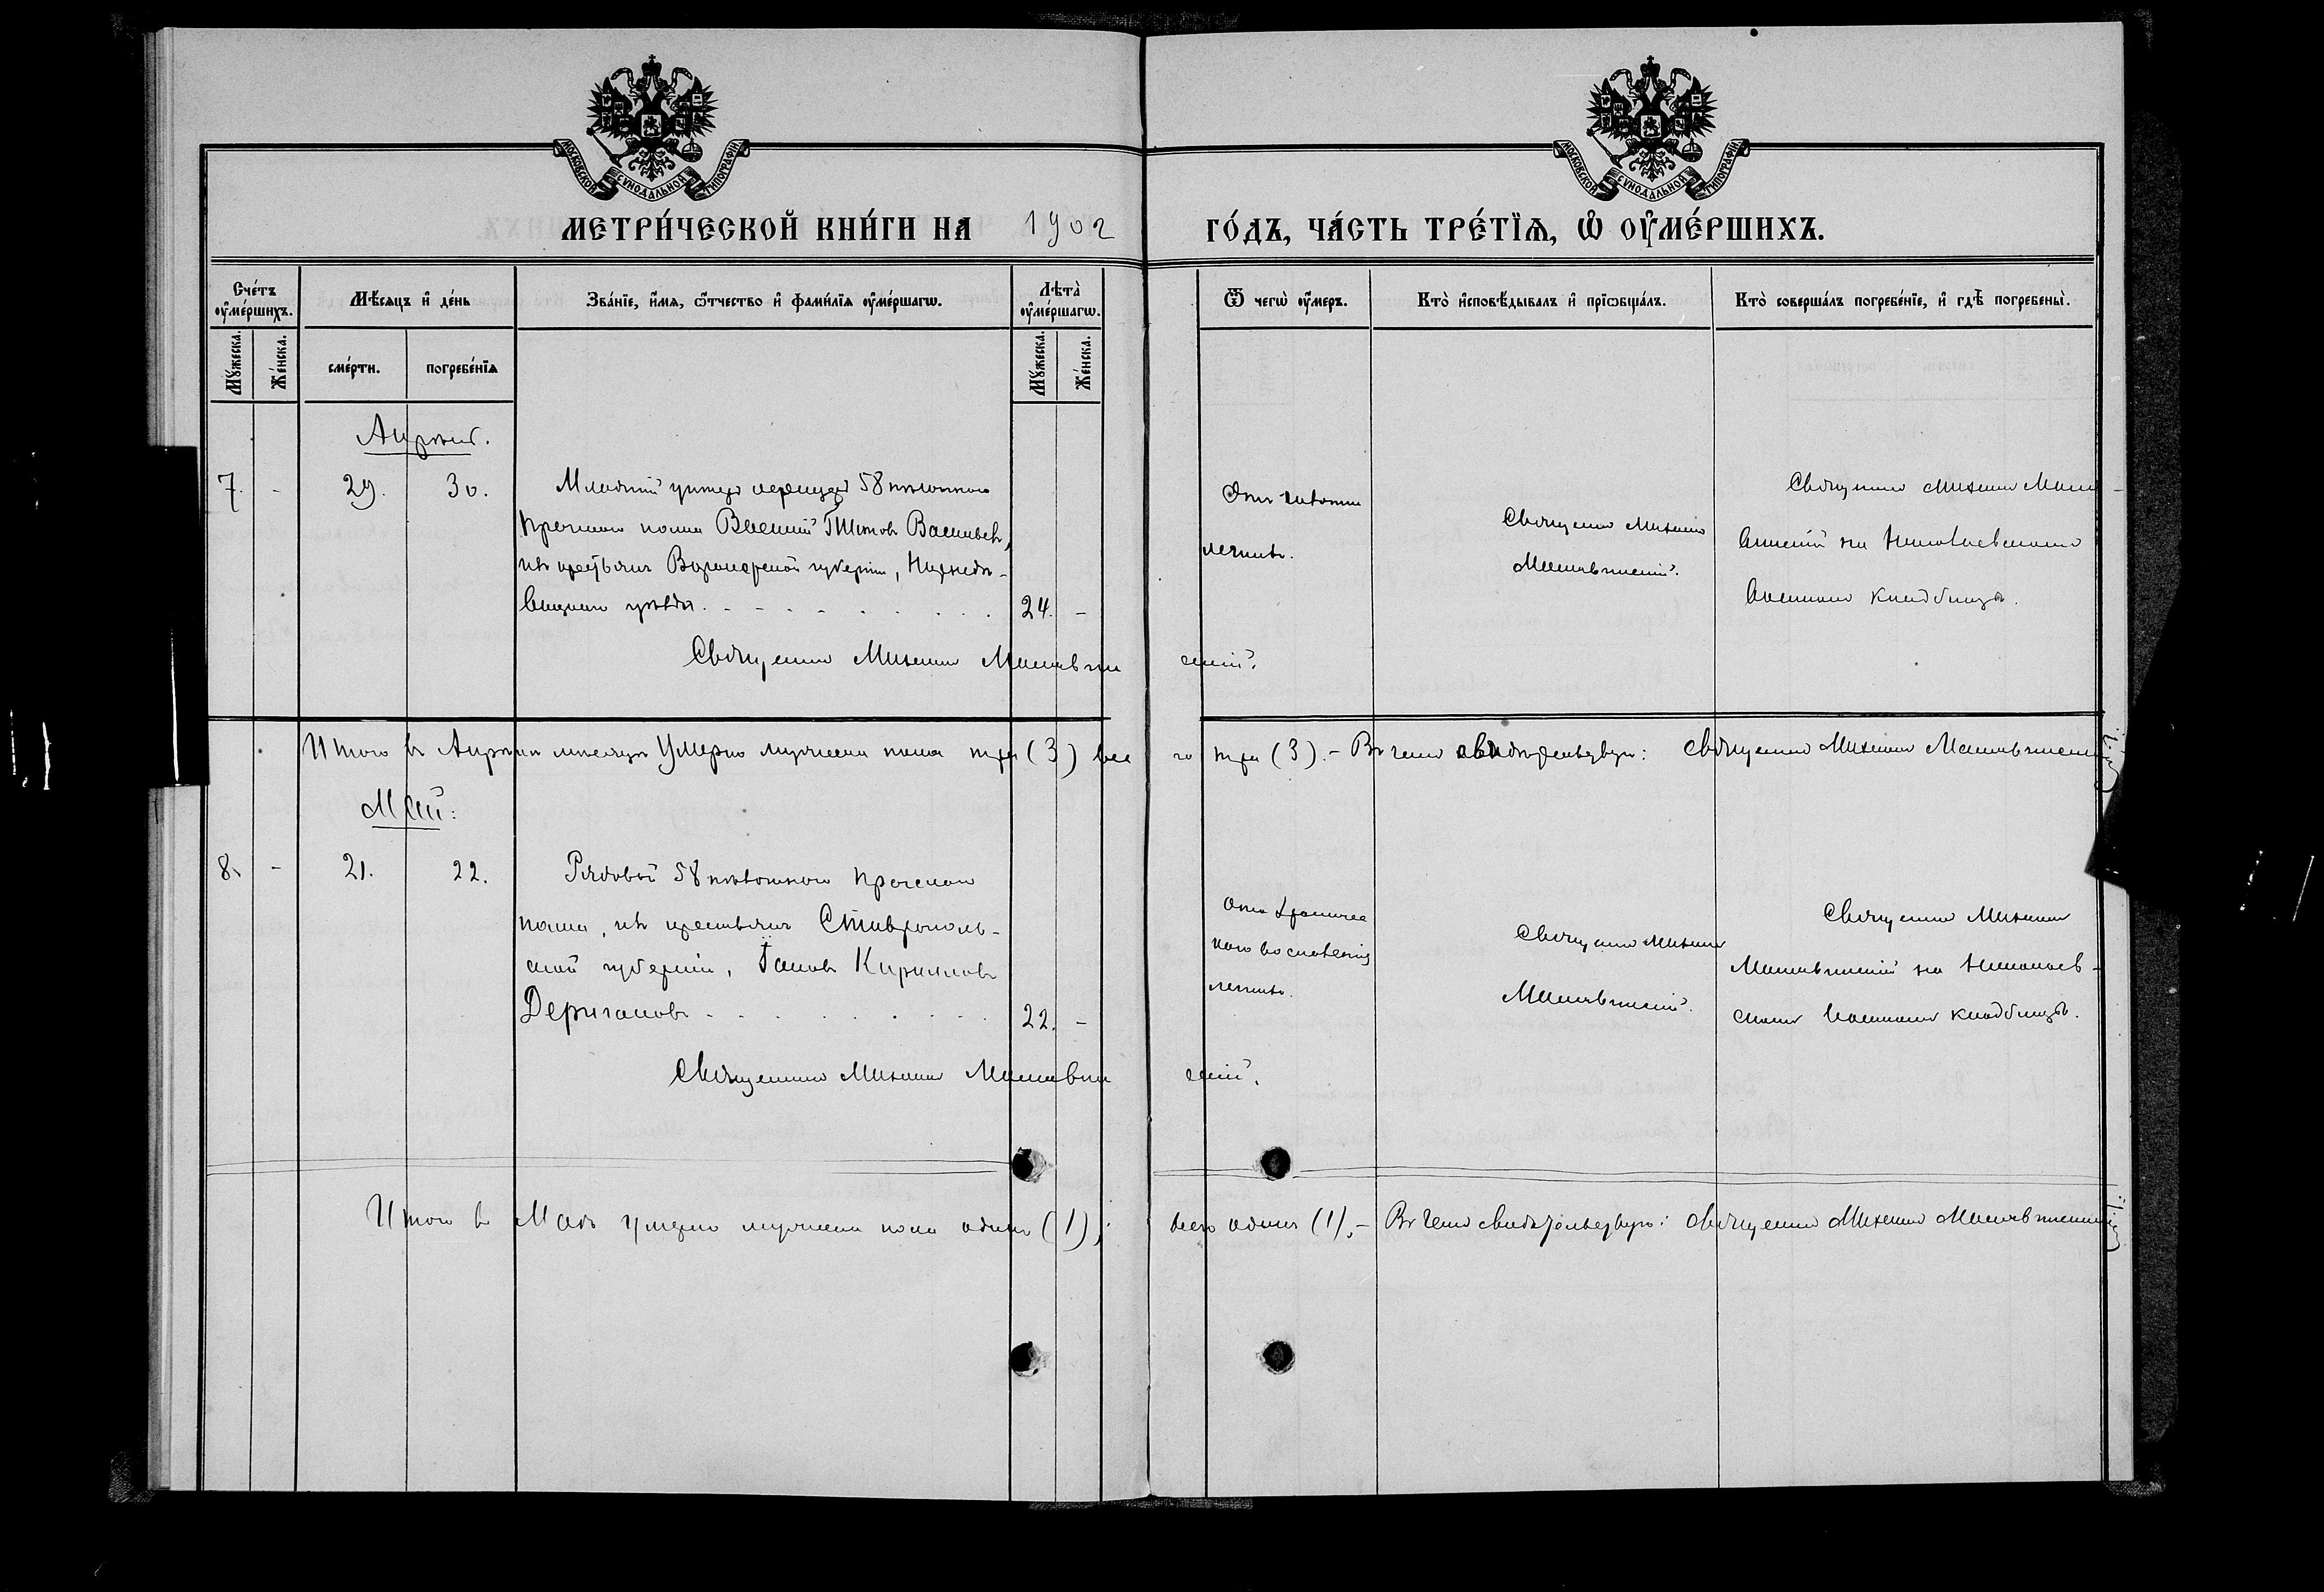 МОСКОВСКОЙ СѴНОДАЛЬНОЙ ТИПОГРАФІИ
МОСКОВСКОЙ СѴНОДАЛЬНОЙ ТИПОГРАФІИ
МЕТРИ́ЧЕСКОЙ КНИ́ГИ НА 1902 ГО́ДЪ, ЧА́СТЬ ТРЕ́ТЇѦ, Ѡ҆ ОУ҆МЕ́РШИХЪ.
Сче́тъ оу҆ме́ршихъ.
Мꙋ́жеска.
Же́нска.
Мѣ́сѧцъ и҆ де́нь
сме́рти.
погребе́нїѧ
Зва́нїе, и҆́мѧ, ѻ҆́тчество и҆ фами́лїѧ оу҆ме́ршагѡ.
Лѣта̀ оу҆ме́ршагѡ.
Мꙋ́жеска.
Же́нска.
Ѿ чегѡ̀ оу҆́меръ.
Кто̀ и҆сповѣ́дывалъ и҆ прїѡбща́лъ.
Кто̀ соверша́лъ погребе́нїе, и҆ гдѣ̀ погребены̀.
Апрѣль.
7. - 29. 30.
Младшій унтеръ офицеръ 58 пѣхотнаго
Прагскаго полка Василій Титовъ Васильевъ,
изъ крестьянъ Воронежской губерніи, Нижнедѣ-
вицкаго уѣзда. 24. -
Священникъ Михаилъ
легкихъ.
Священникъ Михаилъ
Священникъ Михаилъ
на Николаевскомъ
военномъ кладбищѣ.
Итого въ Апрѣлѣ мѣсяцѣ умерло мужеска пола три (3) все го три (3). - Въ чемъ свидѣтельствую: Священникъ Михаилъ
Май:
8. - 21. 22.
Рядовой 58 пѣхотнаго Прагскаго
полка, изъ крестьянъ Ставрополь-
ской губерніи, Кирилловъ
22. -
Священникъ Михаилъ
Отъ хроничес
каго воспаленія
легкихъ.
Священникъ Михаилъ
Священникъ Михаилъ
на Николаев-
скомъ военномъ кладбищѣ.
Итого въ Маѣ умерло мужеска пола одинъ (1), всего одинъ (1). - Въ чемъ свидѣтельствую: Священникъ Михаилъ